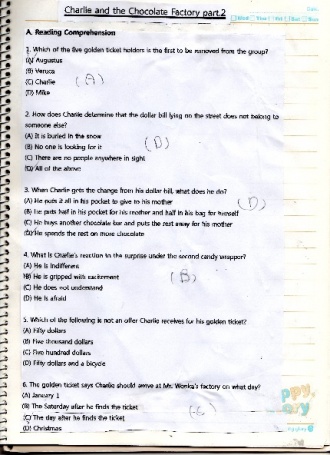 Charlie and the Chocolate Factory part.2
A. Reading Comprehension
1. Which of the five golden ticket holders is the first to be removed from the group?
(A) Augustus
(B) Veruca
(C) Charlie
(D) Mike
(A)
2. How does Charlie determine that the dollar bill lying on the street does not belong to
someone else?
(A) It is buried in the snow
(B) No one is looking for it
(C) There are no people anywhere in sight
(D) All of the above
(D)
3. When Charlie gets the change from his dollar bill, what does he do?
(A) He puts it all in his pocket to give to his mother
(B) He puts half in his pocket for his mother and half in his bag for himself
(C) He buys another chocolate bar and puts the rest away for his mother
(D) He spends the rest on more chocolate
(D)
4. What is Charlie's reaction to the surprise under the second candy wrapper?
(A) He is indifferent
(B) He is gripped with excitement
(C) He does not understand
(D) He is afraid
(B)
5. Which of the following is not an offer Charlie receives for his golden ticket?
(A) Fifty dollars
(B) Five thousand dollars
(C) Five hundred dollars
(D) Fifty dollars and a bicycle
6. The golden ticket says Charlie should arrive at Mr. Wonka's factory on what day?
(A) January 1
(B) The Saturday after he finds the ticket
(C) The day after he finds the ticket
(D) Christmas